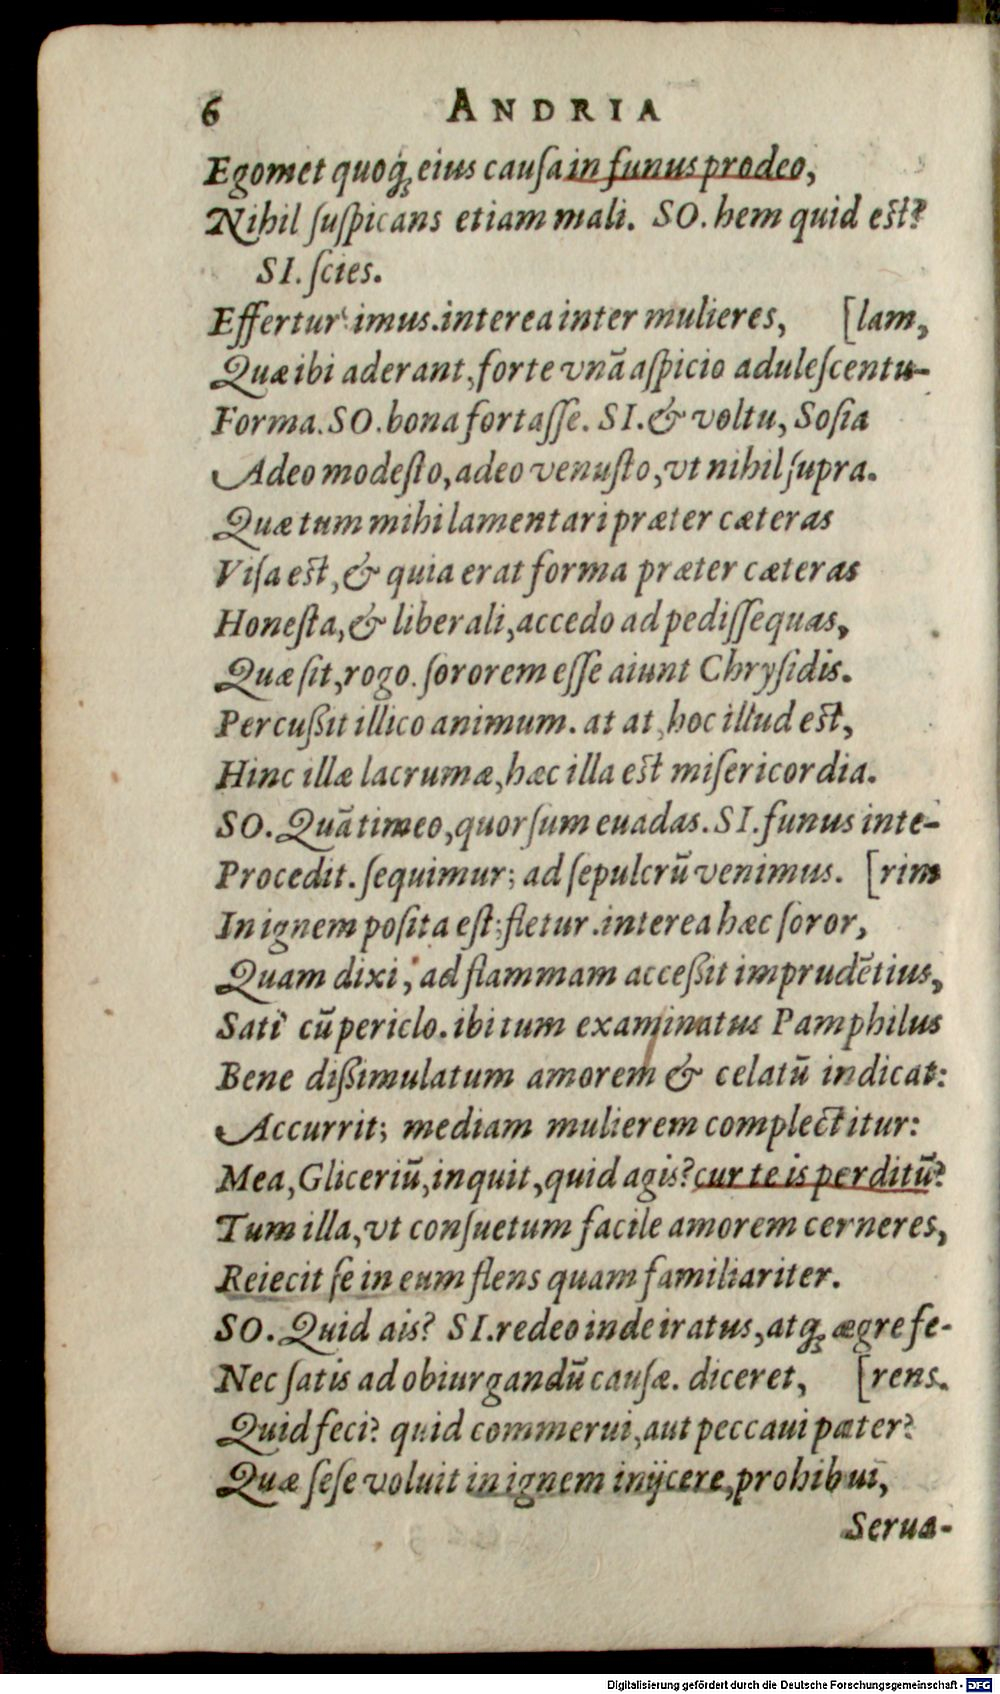 6 ANDRIA
Egomet quoq; eius cauſa in funus prodeo,
Nihil ſuſpicans etiam mali. SO. hem quid eſt?
SI. ſcies.
Effertur imus. interea inter mulieres, [lam,
Quæ ibi aderant, forte vnā aſpicio aduleſcentu-
Forma. SO. bona fortaſſe. SI. & voltu, Soſia
Adeo modeſto, adeo venuſto, vt nihil ſupra.
Quæ tum mihi lamentari præter cæteras
Viſa eſt, & quia erat forma præter cæteras
Honeſta, & liberali, accedo ad pediſſequas,
Quæ ſit, rogo. ſororem eſſe aiunt Chryſidis.
Percußit illico animum. at at, hoc illud eſt,
Hinc illæ lacrumæ, hæc illa eſt miſericordia.
SO. Quā timeo, quorſum euadas. SI. funus inte-
Procedit. ſequimur; ad ſepulcrū venimus. [rim
In ignem poſita eſt; fletur. interea hæc ſoror,
Quam dixi, ad flammam acceßit imprudētius,
Sati' cū periclo. ibi tum exanimatus Pamphilus
Bene dißimulatum amorem & celatū indicat:
Accurrit; mediam mulierem complectitur:
Mea, Gliceriū, inquit, quid agis? cur te is perditū?
Tum illa, vt conſuetum facile amorem cerneres,
Reiecit ſe in eum flens quam familiariter.
SO. Quid ais? SI. redeo inde iratus, atq; ægre fe-
Nec ſatis ad obiurgandū cauſæ. diceret, [rens.
Quid feci? quid commerui, aut peccaui pater?
Quæ ſeſe voluit in ignem inijcere, prohibui,
Serua-
Digitalisierung gefördert durch die Deutsche Forschungsgemeinschaft - DFG